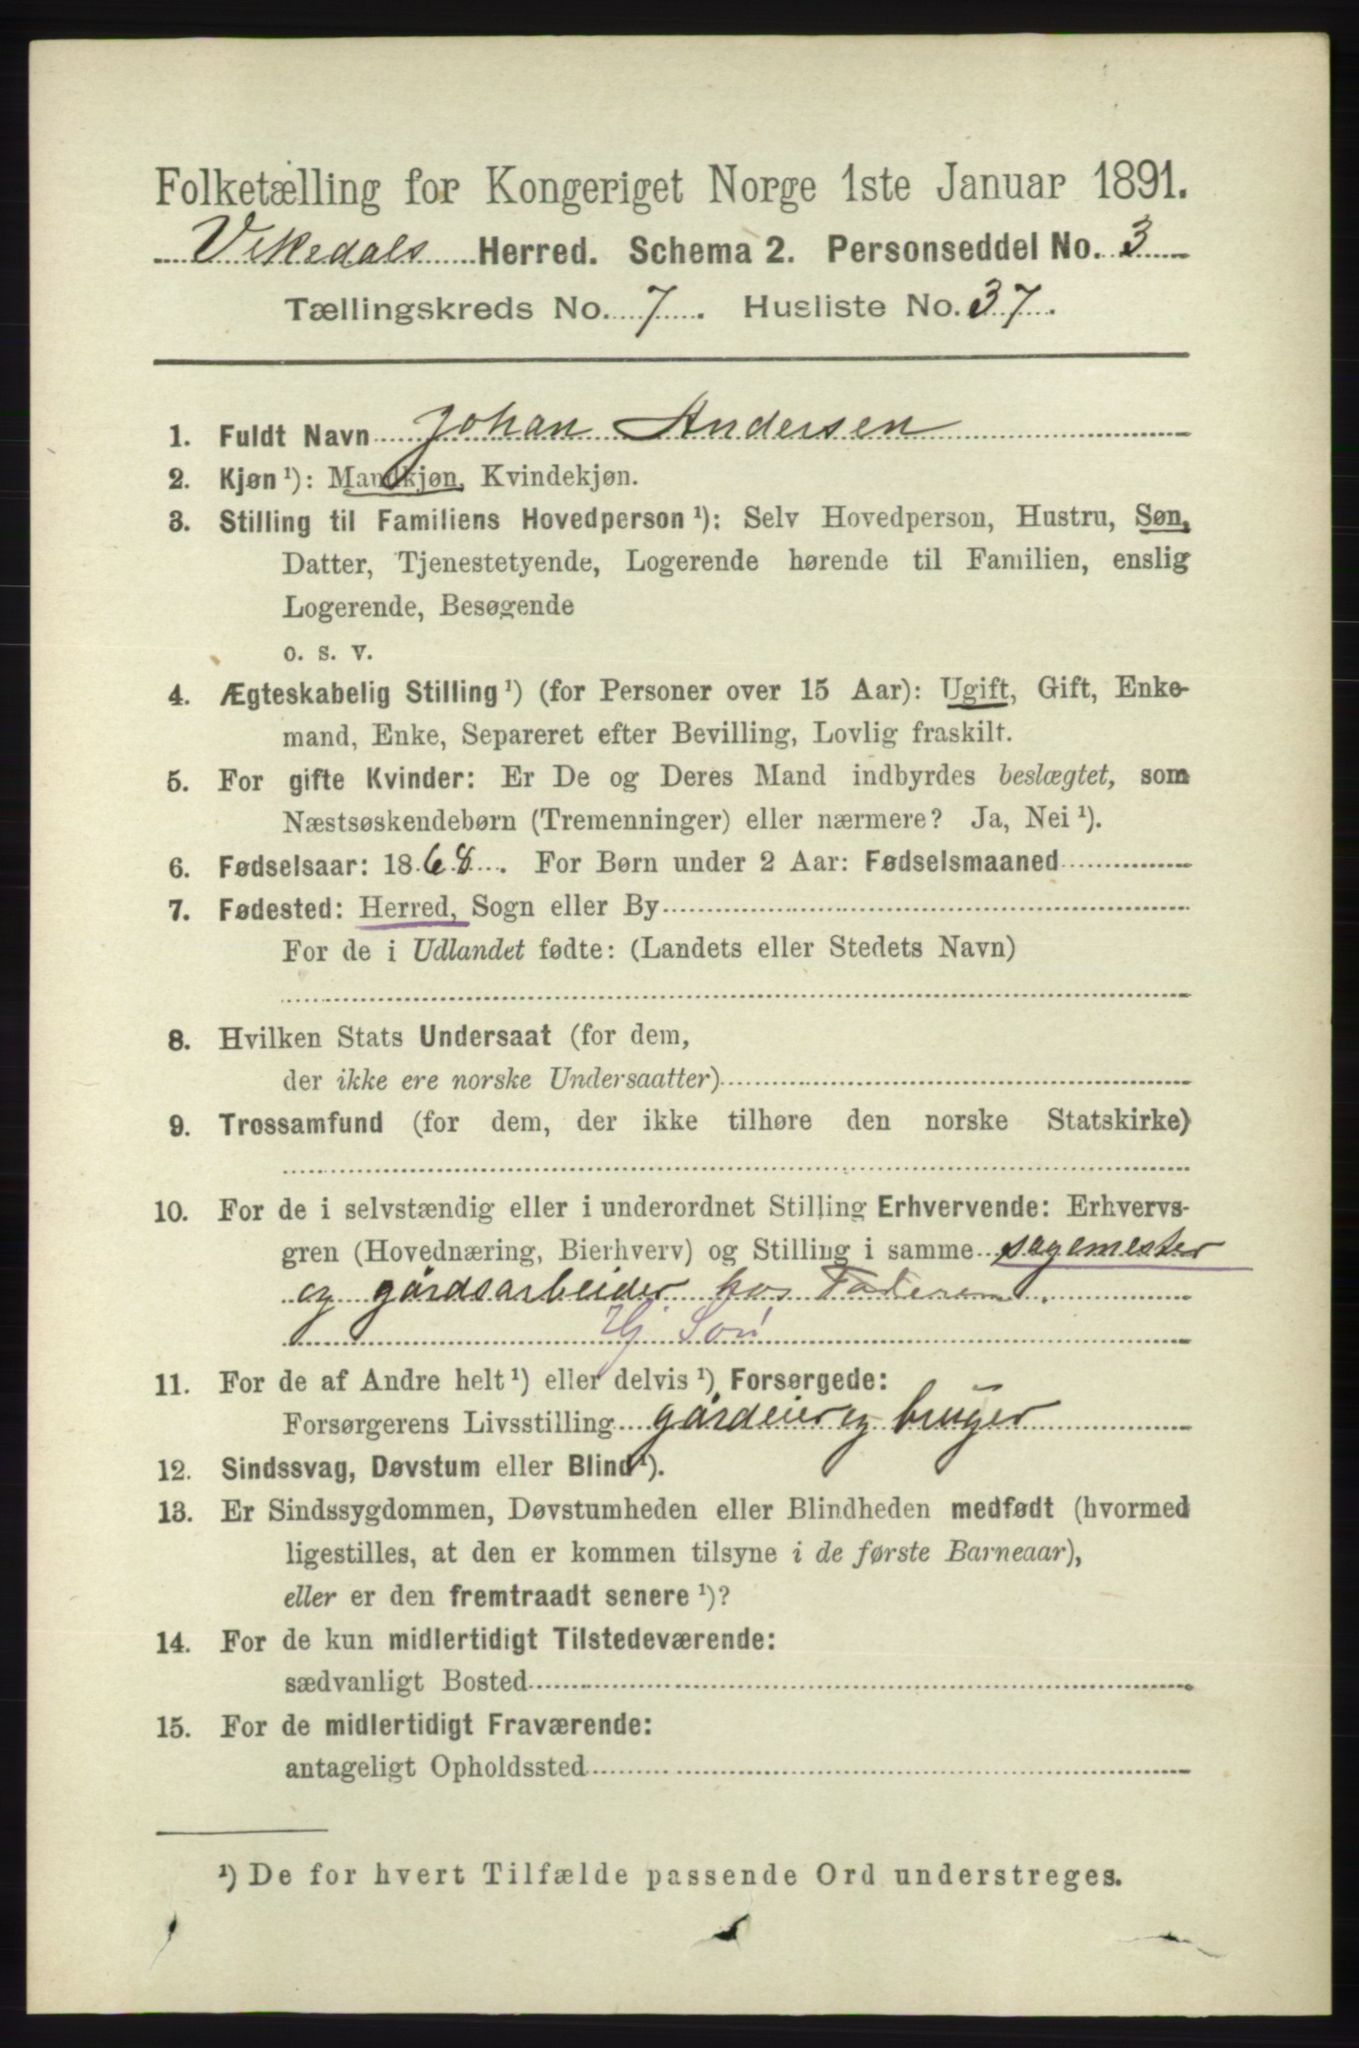 Folketælling for Kongeriget Norge 1ste Januar 1891.
Vikedals Herred. Schema 2. Personseddel No. 3
Tællingskreds No. 7. Husliste No. 37.
1. Fuldt Navn Johan Andersen
2. Kjøn ¹): Mandkjøn, Kvindekjøn.
3. Stilling til Familiens Hovedperson ¹): Selv Hovedperson, Hustru, Søn,
Datter, Tjenestetyende, Logerende hørende til Familien, enslig
Logerende, Besøgende
o. s. v.
4. Ægteskabelig Stilling ¹) (for Personer over 15 Aar): Ugift, Gift, Enke-
mand, Enke, Separeret efter Bevilling, Lovlig fraskilt.
5. For gifte Kvinder: Er De og Deres Mand indbyrdes beslægtet, som
Næstsøskendebørn (Tremenninger) eller nærmere? Ja, Nei ¹).
6. Fødselsaar: 1868. For Børn under 2 Aar: Fødselsmaaned
7. Fødested: Herred, Sogn eller By
For de i Udlandet fødte: (Landets eller Stedets Navn)
8. Hvilken Stats Undersaat (for dem,
der ikke ere norske Undersaatter)
9. Trossamfund (for dem, der ikke tilhøre den norske Statskirke)
10. For de i selvstændig eller i underordnet Stilling Erhvervende: Erhvervs-
gren (Hovednæring, Bierhverv) og Stilling i samme sagemester
og gårdsarbeider hos Faderen.
Hj Søn
11. For de af Andre helt ¹) eller delvis ¹) Forsørgede:
Forsørgerens Livsstilling gårdeier og bruger
12. Sindssvag, Døvstum eller Blind ¹).
13. Er Sindssygdommen, Døvstumheden eller Blindheden medfødt (hvormed
ligestilles, at den er kommen tilsyne i de første Barneaar),
eller er den fremtraadt senere ¹)?
14. For de kun midlertidigt Tilstedeværende:
sædvanligt Bosted
15. For de midlertidigt Fraværende:
antageligt Opholdssted
¹) De for hvert Tilfælde passende Ord understreges.